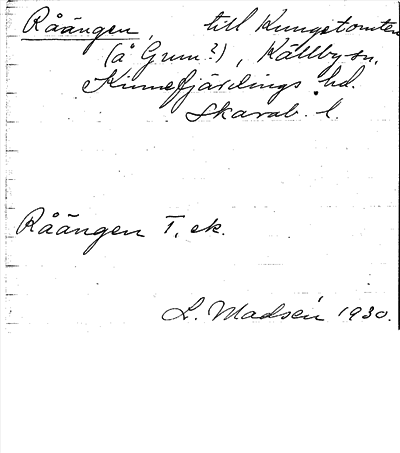 Råängen, till Kungstomten
(å Gum?), Källby sn,
Kinnefjärdings hd.
Skarab. l.
Råängen T. ek.
L. Madsén 1930.